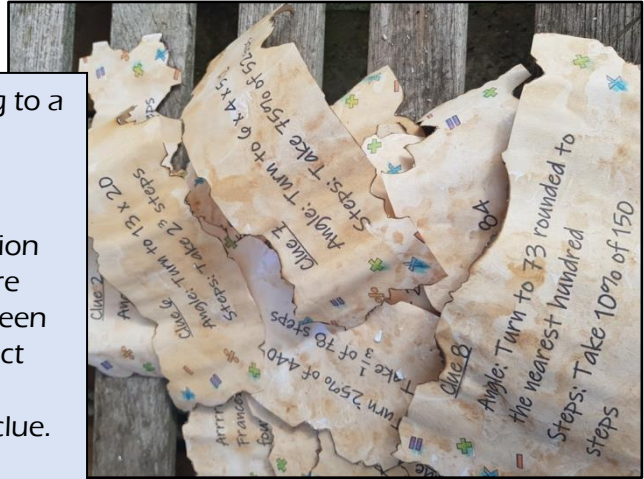 g to a
ion
re
een
ct
clue.
Clue 2
Clue 6
Angle: Turn to 13 x 20
Steps: Take 23 steps
Clue 7
Angle: Turn to 6 x 4 x 5
Steps: Take 75% of 52
84
Turn 25% of 440
Take 1/3 of 78 steps
Clue 8
Angle: Turn to 73 rounded to
the nearest hundred
Steps: Take 10% of 150
steps
Arrrr
France
four